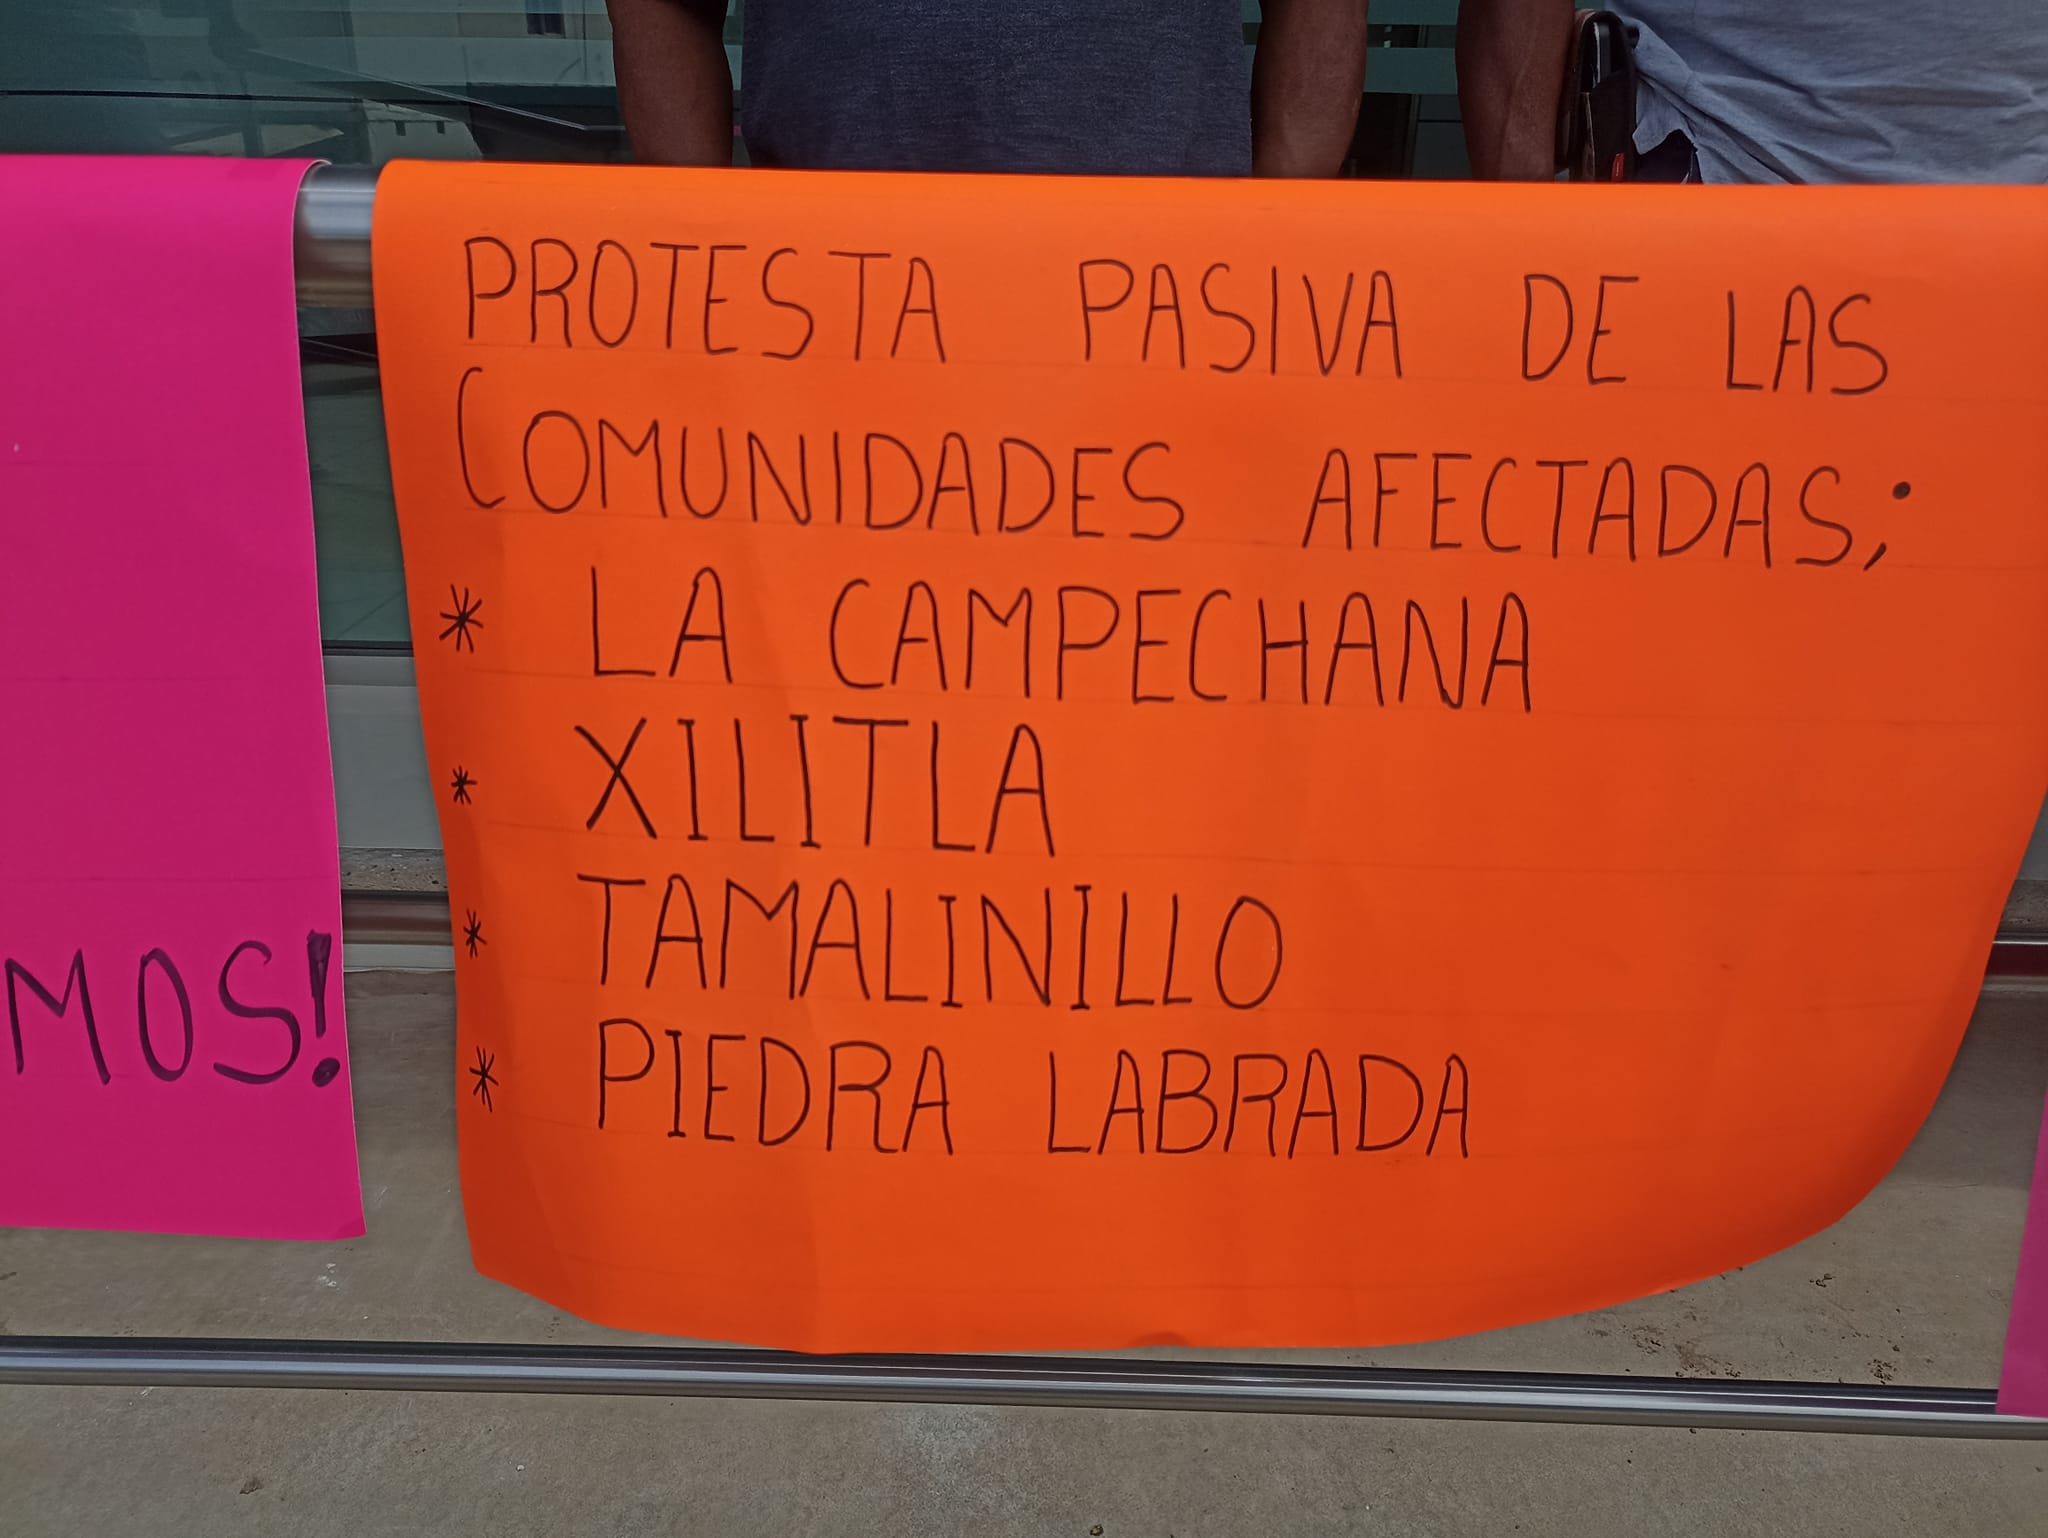 PROTESTA PASIVA DE LAS
COMUNIDADES AFECTADAS;
* LA CAMPECHANA
* XILITLA
* TAMALINILLO
* PIEDRA LABRADA
MOS!